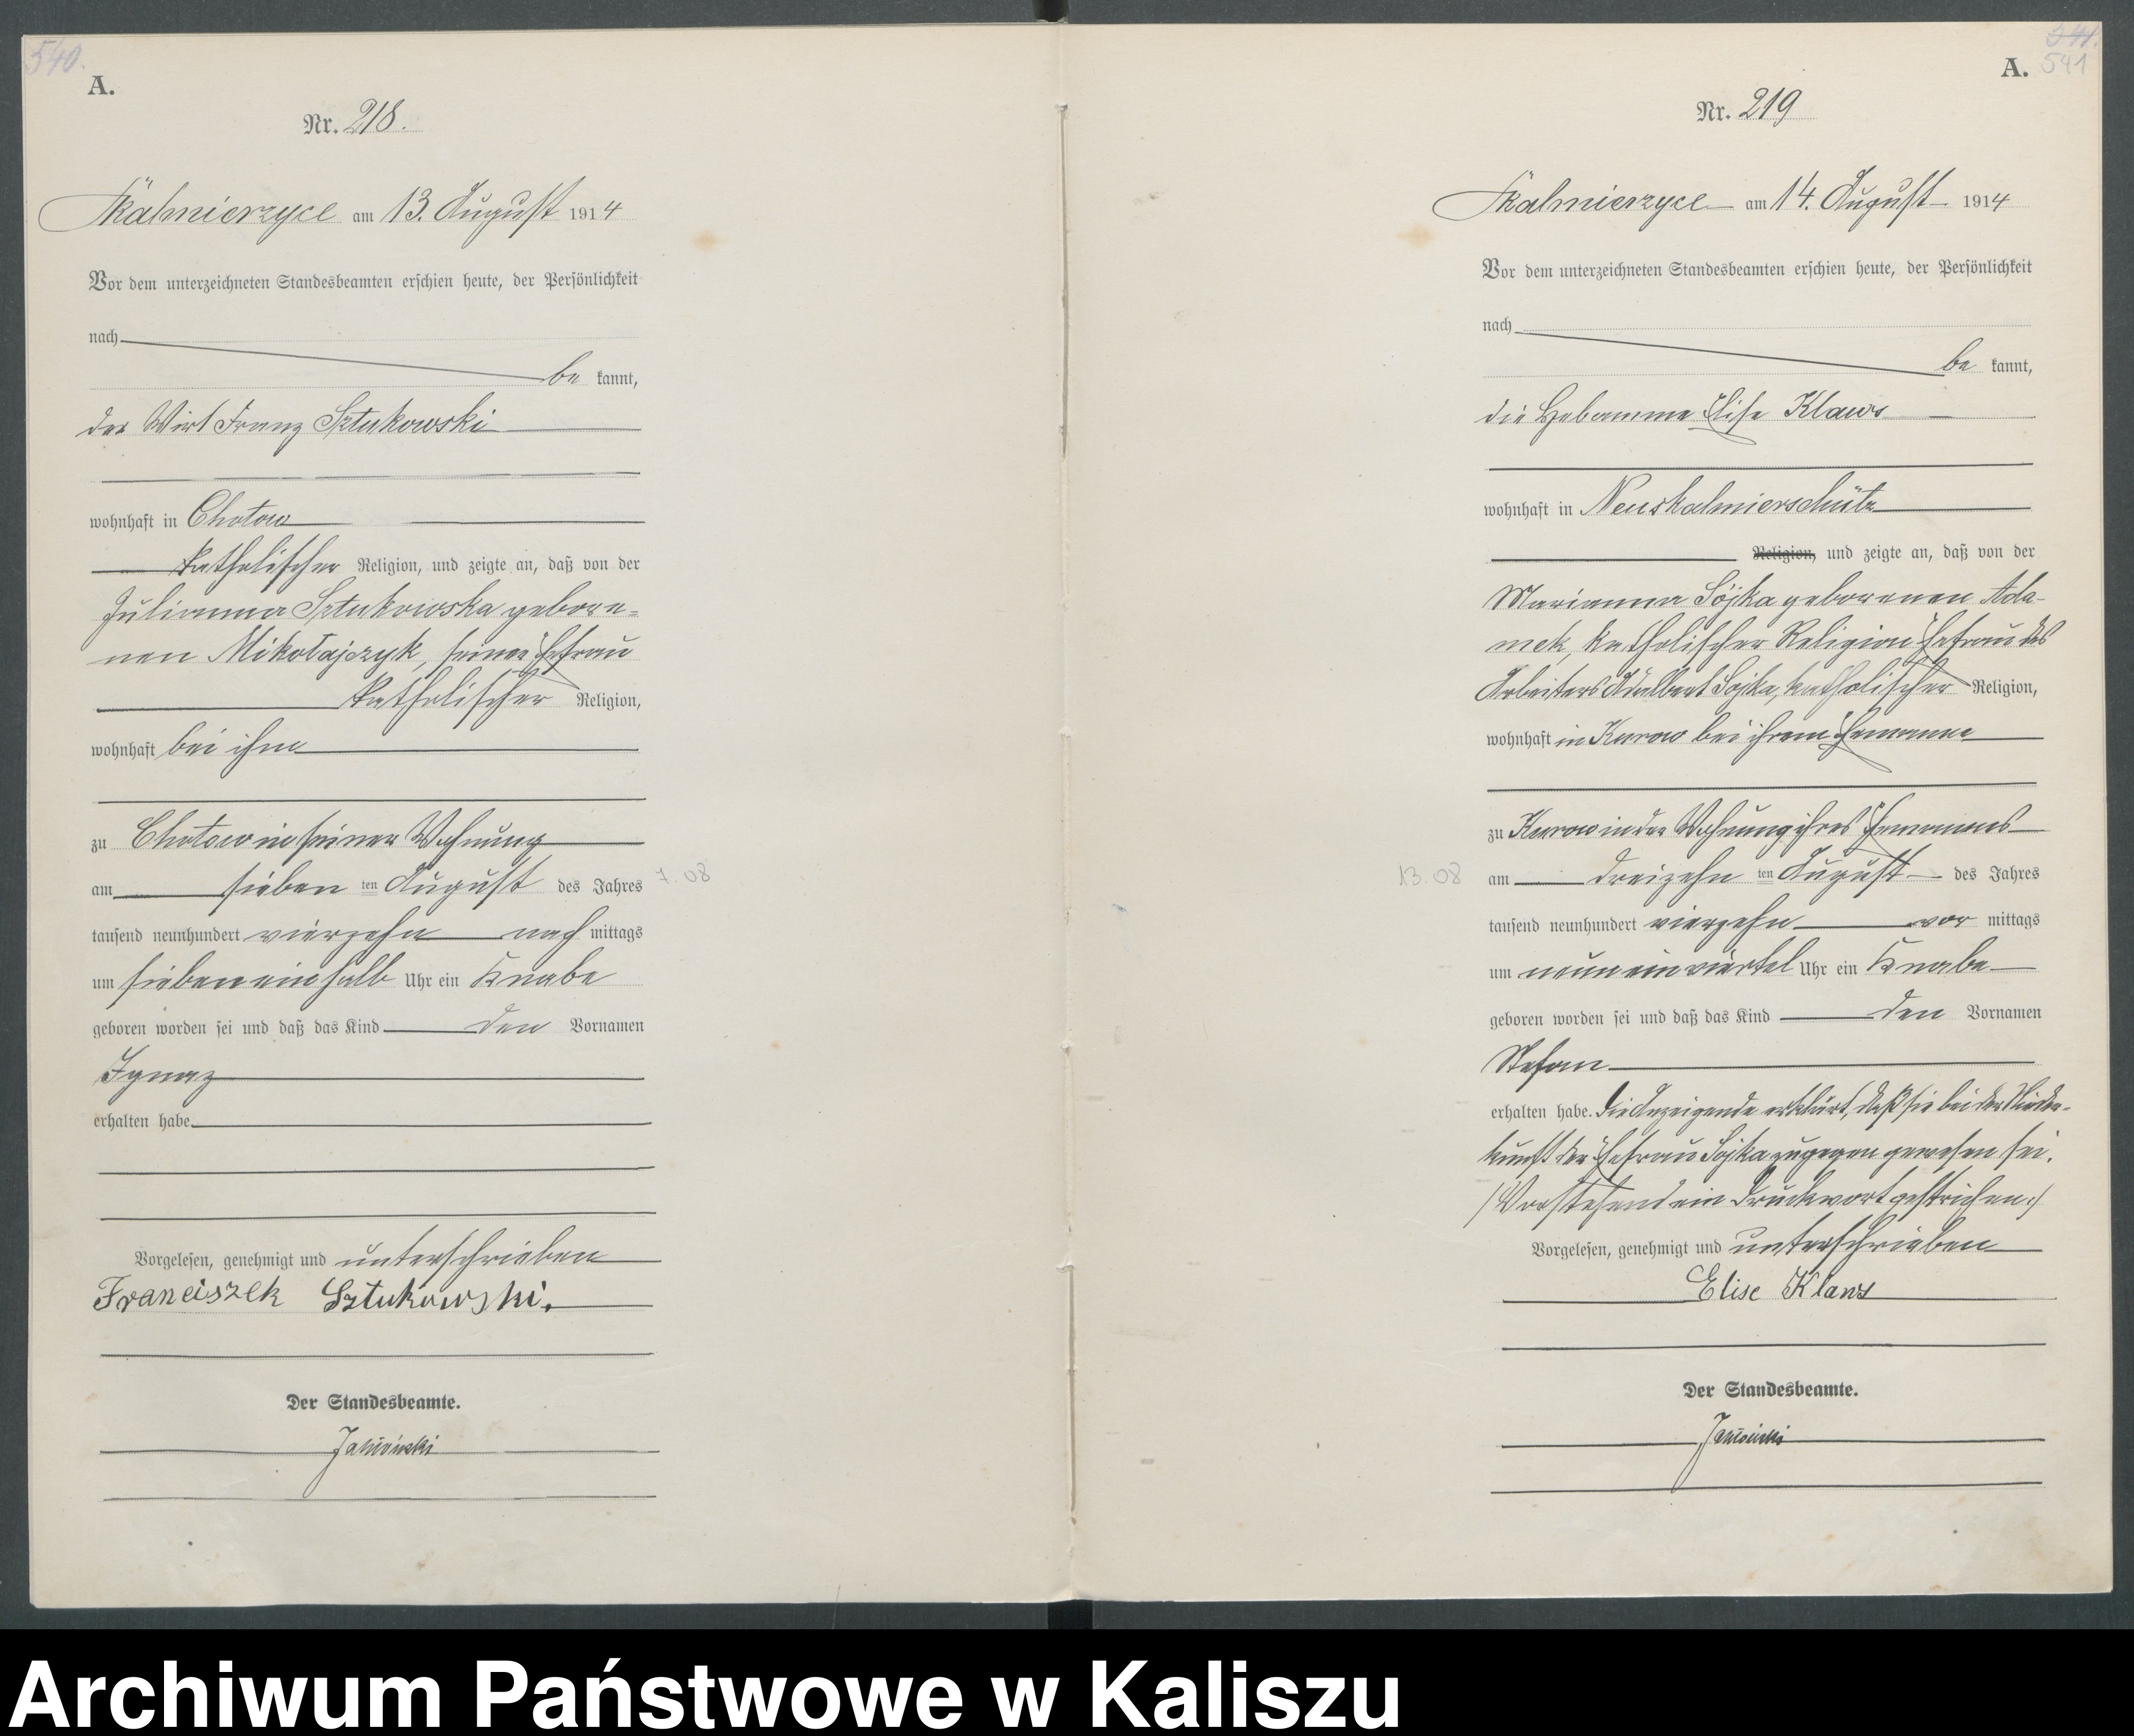 540.
A.
Nr. 218.
Skalmierzyce am 13. August 1914
Vor dem unterzeichneten Standesbeamten erschien heute, der Persönlichkeit
nach
be kannt,
der Wirt Franz Sztukowski
wohnhaft in Chotow
katholischer Religion, und zeigte an, daß von der
Julianna Sztukowska gebore-
nen Mikołajczyk, seiner Ehefrau
katholischer Religion,
wohnhaft bei ihm
zu Chotow in seiner Wohnung
am sieben ten August des Jahres 7.08
tausend neunhundert vierzehn nach mittags
um sieben einhalb Uhr ein Knabe
geboren worden sei und daß das Kind den Vornamen
Ignaz
erhalten habe.
Vorgelesen, genehmigt und unterschrieben
Franciszek Sztukowski.
Der Standesbeamte.
541.
541
A.
Nr. 219
Skalmierzyce am 14. August 1914
Vor dem unterzeichneten Standesbeamten erschien heute, der Persönlichkeit
nach
be kannt,
die Hebamme Elise Klaws
wohnhaft in Neuskalmierschütz
Religion, und zeigte an, daß von der
Marianna Sójka geborenen Ada-
mek, katholischer Religion Ehefrau des
Arbeiters Adalbert Sójka, katholischer Religion,
wohnhaft in Kurow bei ihrem Ehemanne
zu Kurow in der Wohnung ihres Ehemannes
13.08 am dreizehn ten August des Jahres
tausend neunhundert vierzehn vor mittags
um neun einviertel Uhr ein Knabe
geboren worden sei und daß das Kind den Vornamen
Stefan
erhalten habe. Die Anzeigende erklärt, daß sie bei der Nieder-
kunft der Ehefrau Sójka zugegen gewesen sei.
/Vorstehend ein Druckwort gestrichen./
Vorgelesen, genehmigt und unterschrieben
Elise Klaws
Der Standesbeamte.
Archiwum Państwowe w Kaliszu